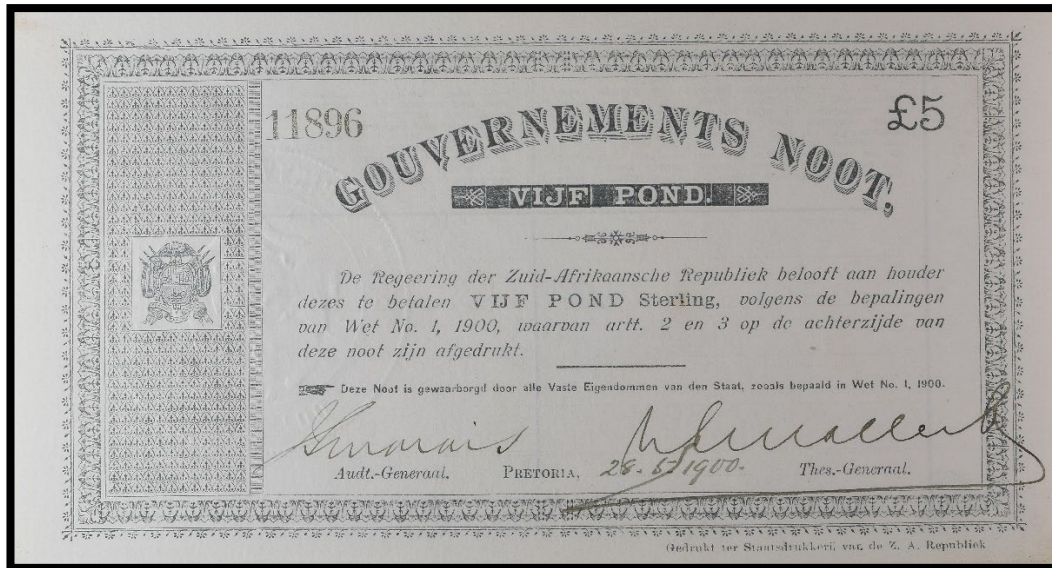 11896
£5
GOUVERNEMENTS NOOT,
VIJF POND.
De Regeering der Zuid-Afrikaansche Republiek belooft aan houder
dezes te betalen VIJF POND Sterling, volgens de bepalingen
van Wet No. 1, 1900, waarvan artt. 2 en 3 op de achterzijde van
deze noot zijn afgedrukt.
Deze Noot is gewaarborgd door alle Vaste Eigendommen van den Staat, zooals bepaald in Wet No. 1, 1900.
Audt.-Generaal. PRETORIA, 28.5.1900. Thes.-Generaal.
Gedrukt ter Staatsdrukkerij van de Z. A. Republiek